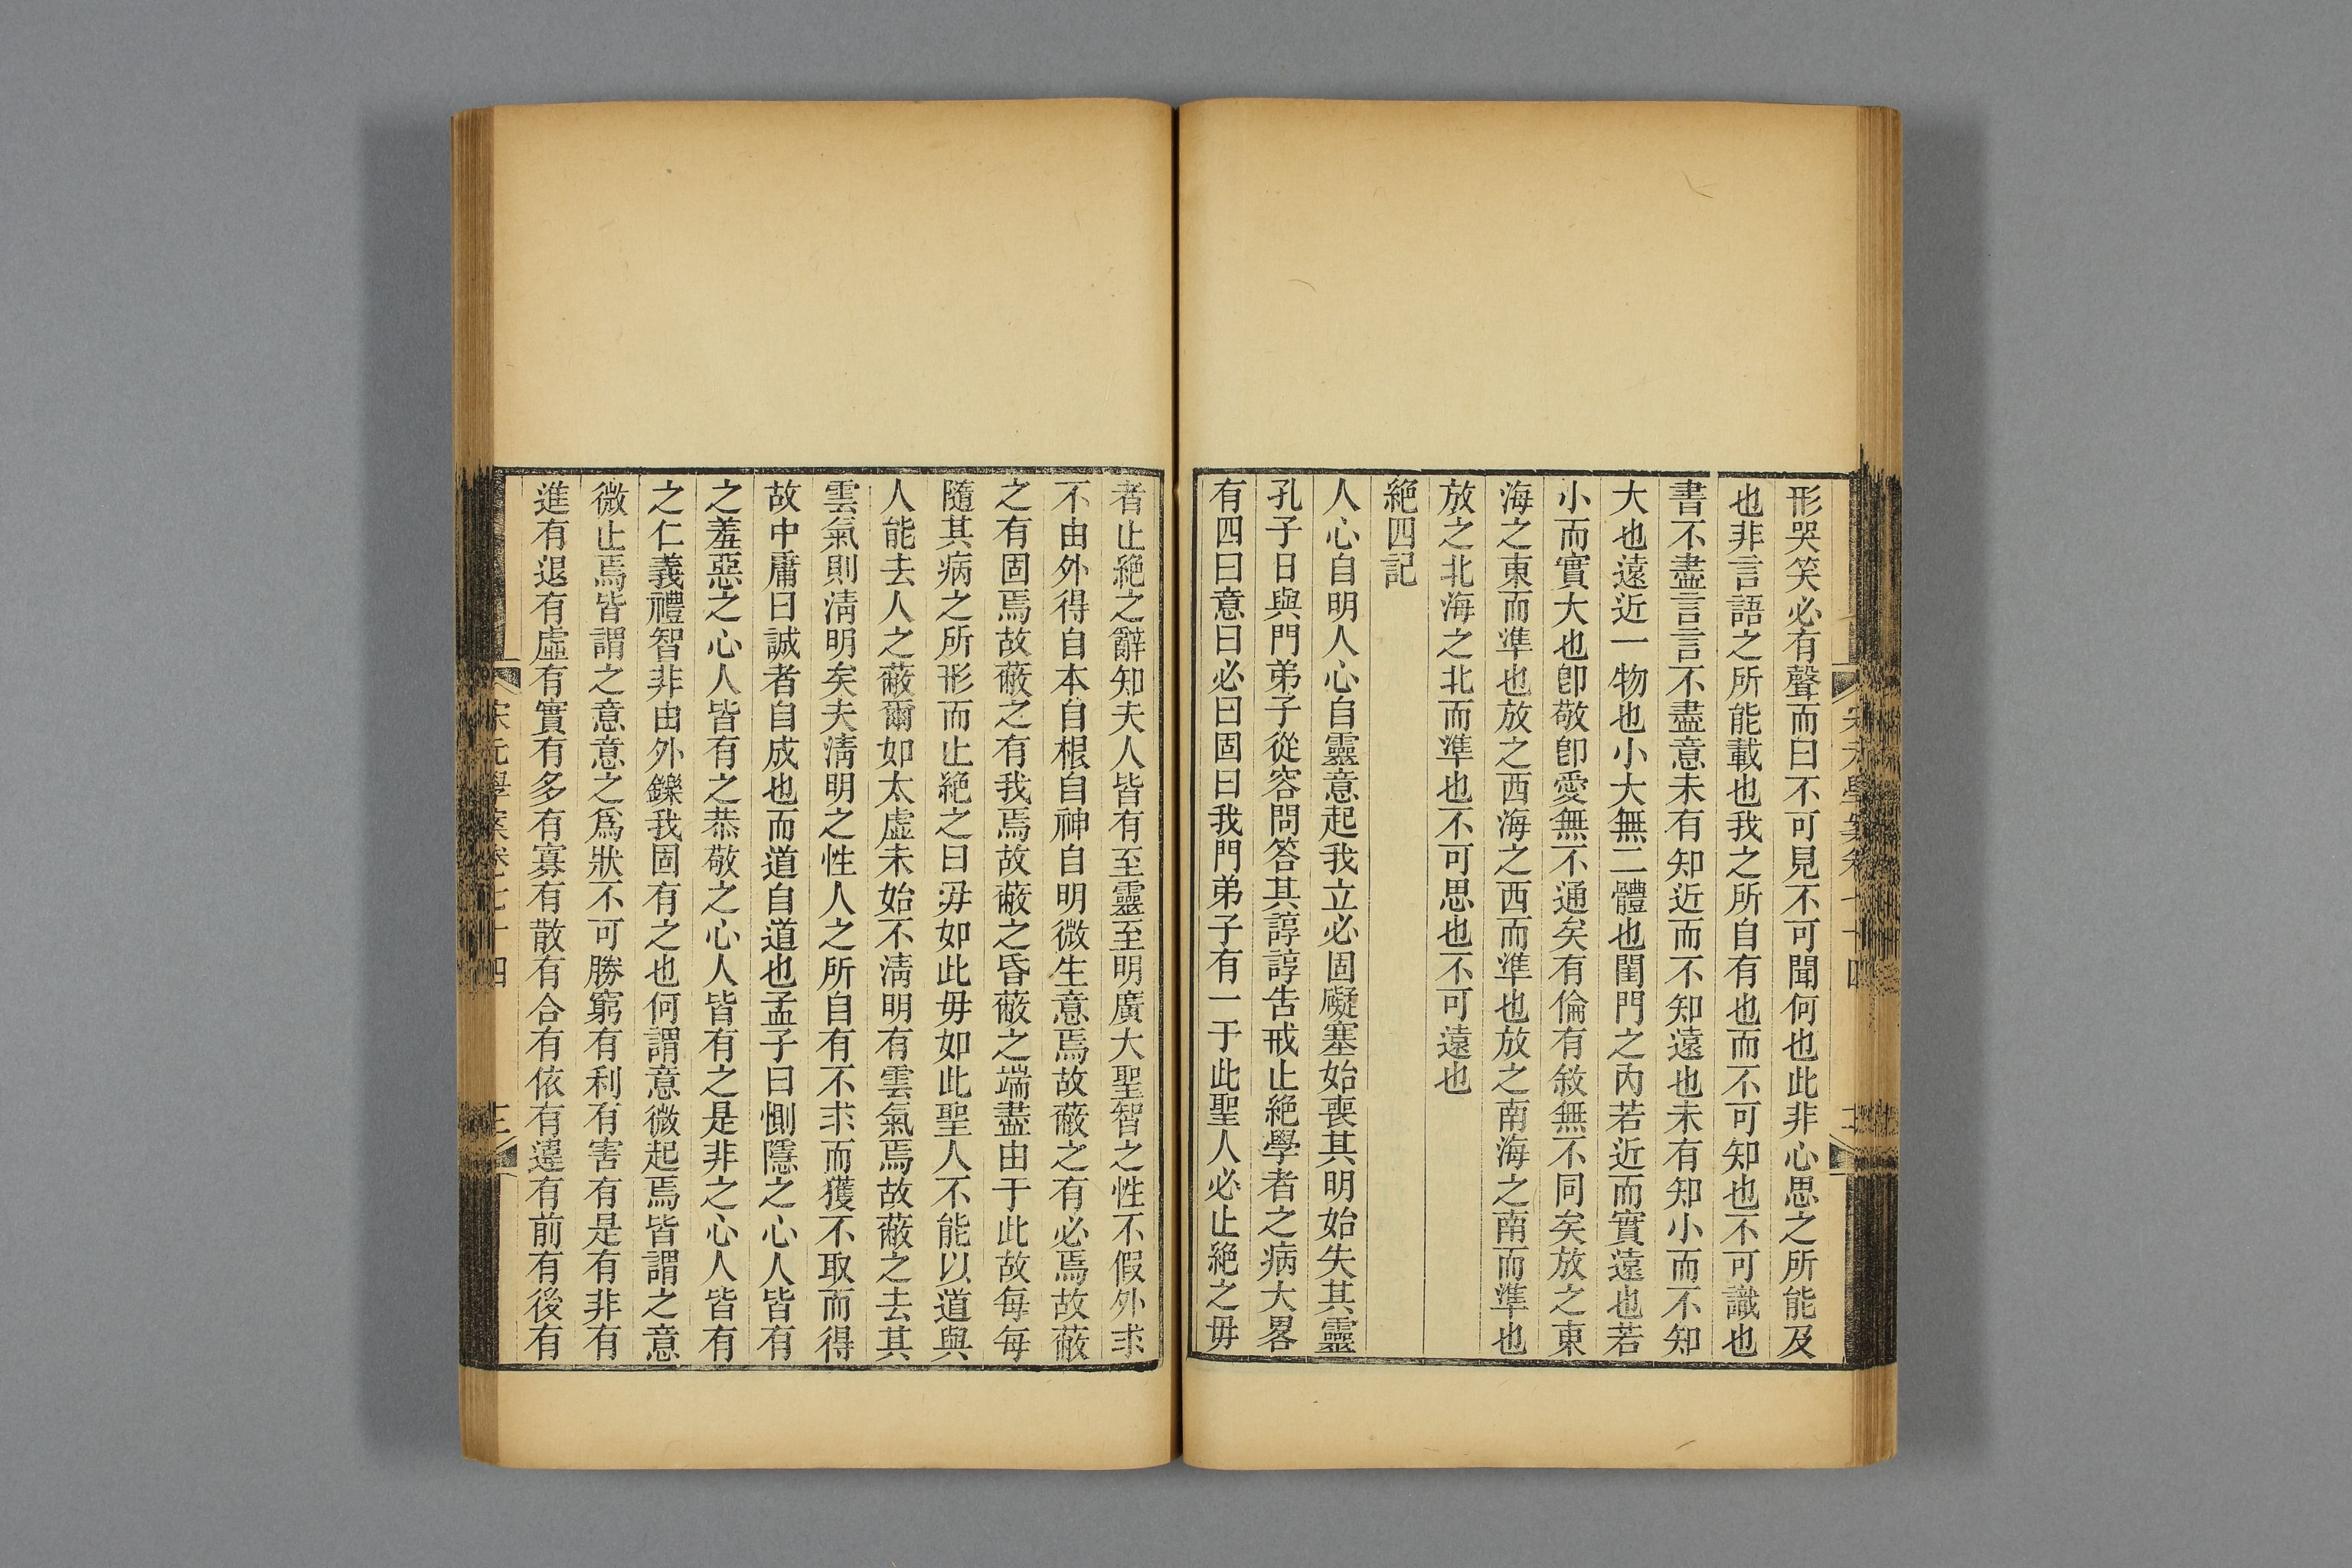 形哭笑必有聲而曰不可見不可聞何也此非心思之所能及
也非言語之所能載也我之所自有也而不可知也不可識也
書不盡言言不盡意未有知近而不知遠也未有知小而不知
大也遠近一物也小大無二體也閨門之內若近而實遠也若
小而實大也卽敬卽愛無不通矣有倫有敘無不同矣放之東
海之東而準也放之西海之西而準也放之南海之南而準也
放之北海之北而準也不可思也不可遠也
絕四記
人心自明人心自靈意起我立必固礙塞始喪其明始失其靈
孔子日與門弟子從容問答其諄諄告戒止絕學者之病大畧
有四曰意曰必曰固曰我門弟子有一于此聖人必止絕之毋
者止絕之辭知夫人皆有至靈至明廣大聖智之性不假外求
不由外得自本自根自神自明微生意焉故蔽之有必焉故蔽
之有固焉故蔽之有我焉故蔽之昏蔽之端盡由于此故每每
隨其病之所形而止絕之曰毋如此毋如此聖人不能以道與
人能去人之蔽爾如太虛未始不淸明有雲氣焉故蔽之去其
雲氣則淸明矣夫淸明之性人之所自有不求而獲不取而得
故中庸曰誠者自成也而道自道也孟子曰惻隱之心人皆有
之羞惡之心人皆有之恭敬之心人皆有之是非之心人皆有
之仁義禮智非由外鑠我固有之也何謂意微起焉皆謂之意
微止焉皆謂之意意之爲狀不可勝窮有利有害有是有非有
進有退有虛有實有多有寡有散有合有依有違有前有後有
宋元學案卷七十四
三